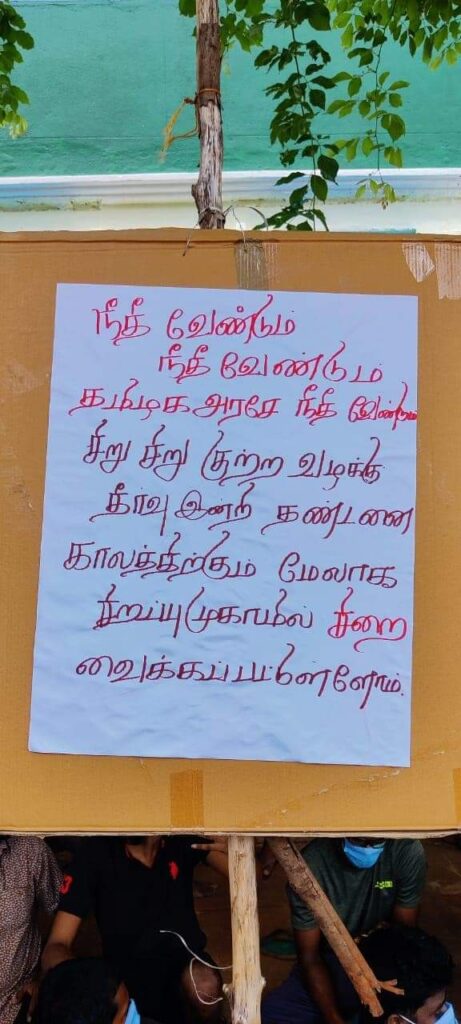 நீதீ வேண்டும்
நீதீ வேண்டும்
தமிழக அரசே நீதீ வேண்டும்
சிறு சிறு குற்ற வழக்கு
தீர்வு இன்றி தண்டனை
காலத்திற்கும் மேலாக
சிறப்புமுகாமில் சிறை
வைக்கப்பட்டுள்ளோம்.